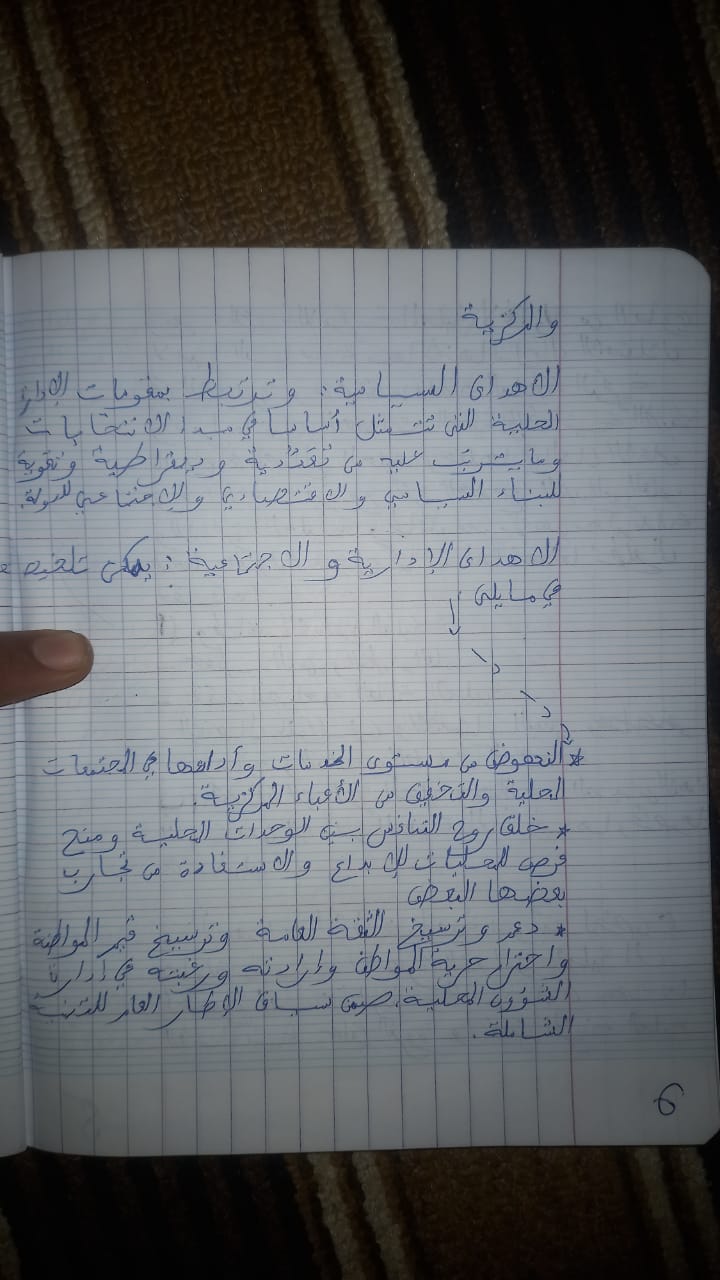 والمركزية
الاهداف السياسية: وترتبط بمقومات الإدارة
المحلية التي تتمثل أساسا في مبدأ الانتخابات
وما يترتب عليه من تعددية وديمقراطية وتقوية
للبناء السياسي والاقتصادي والاجتماعي للدولة.
الاهداف الإدارية والاجتماعية: يمكن تلخيصها
في ما يلي
* النهوض من مستوى الخدمات وأداءها في المجتمعات
المحلية والتخفيف من الأعباء المركزية.
* خلق روح التنافس بين الوحدات المحلية ومنح
فرص للمحليات للإبداع والاستفادة من تجارب
بعضها البعض
* دعم وترسيخ الثقة العامة وترسيخ قيم المواطنة
واحترام حرية المواطن وإرادته ورغبته في إدارة
الشؤون المحلية ضمن سياق الإطار العام للتنمية
الشاملة.
6